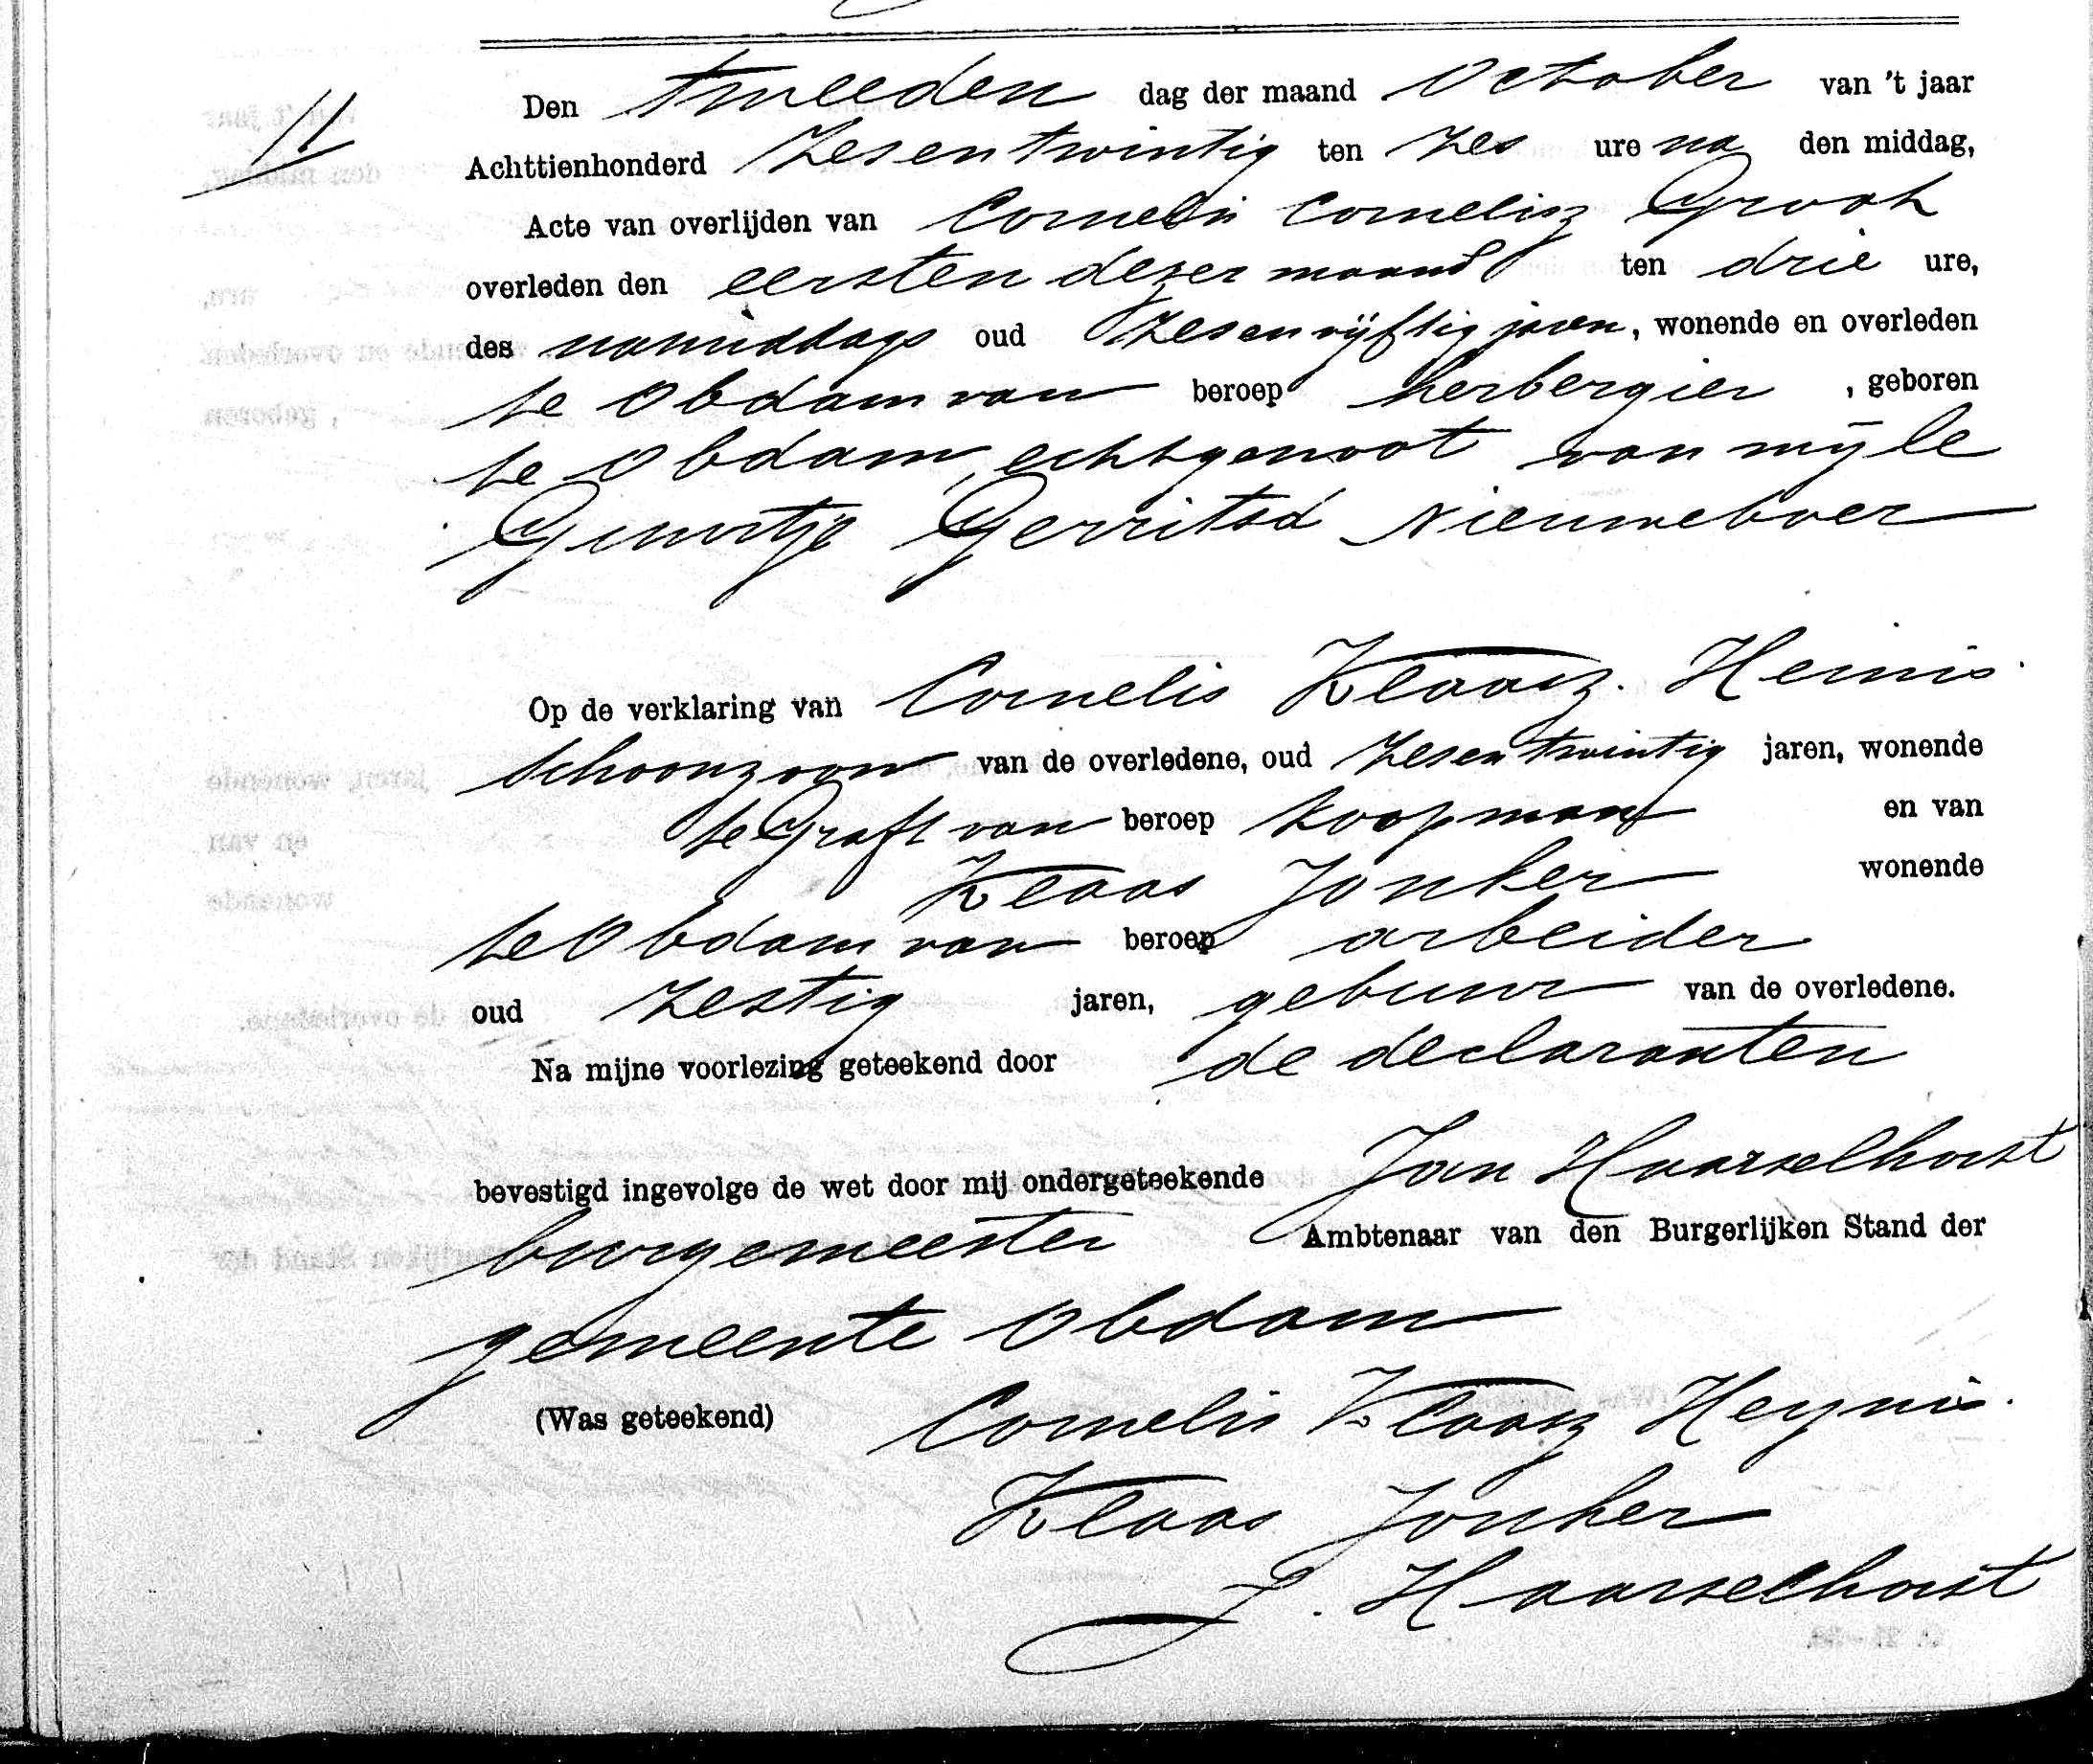 11
Den tweeden dag der maand October van 't jaar
Achttienhonderd Zesentwintig ten Zes ure na den middag,
Acte van overlijden van Cornelis Cornelisz Groot
overleden den eersten dezer maand ten drie ure,
des namiddags oud Zesenvijftig jaren, wonende en overleden
te Obdam van beroep herbergier, geboren
te Obdam, echtgenoot van wijle
Guurtje Gerritsd Nieuweboer
Op de verklaring van Cornelis Klaasz. Heinis
schoonzoon van de overledene, oud Zesentwintig jaren, wonende
te Graft van beroep koopman en van
Klaas Jonker wonende
te Obdam van beroep arbeider
oud Zestig jaren, gebuur van de overledene.
Na mijne voorlezing geteekend door de declaranten
bevestigd ingevolge de wet door mij ondergeteekende Jan Haarselhorst
burgemeester Ambtenaar van den Burgerlijken Stand der
gemeente Obdam
(Was geteekend) Cornelis Klaasz Heynis.
Klaas Jonker
J. Haarselhorst